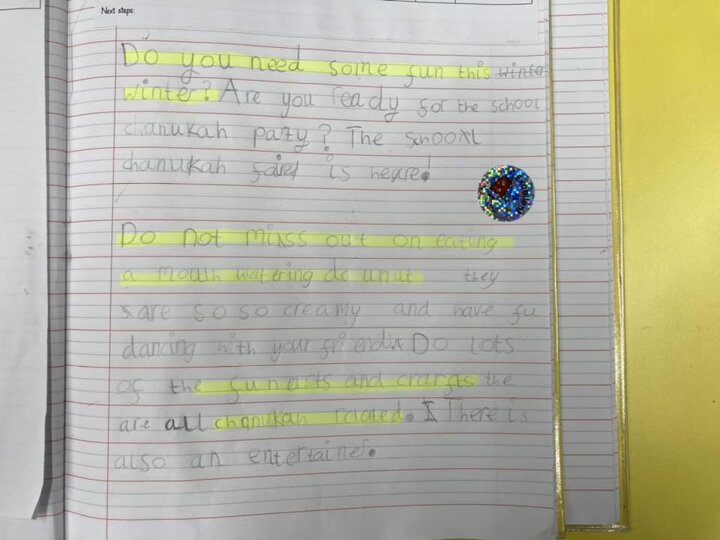 Next steps:
Do you need some fun this winter
winter? Are you ready for the school
chanukah patzy? The school
chanukah faire is heare!
Do not miss out on eating
a mouth watering do unut they
are so so creamy and have fu
dancing with your friend. Do Lots
of the fun arts and crarfts the
are all chanukah raated. There is
also an entertainer.